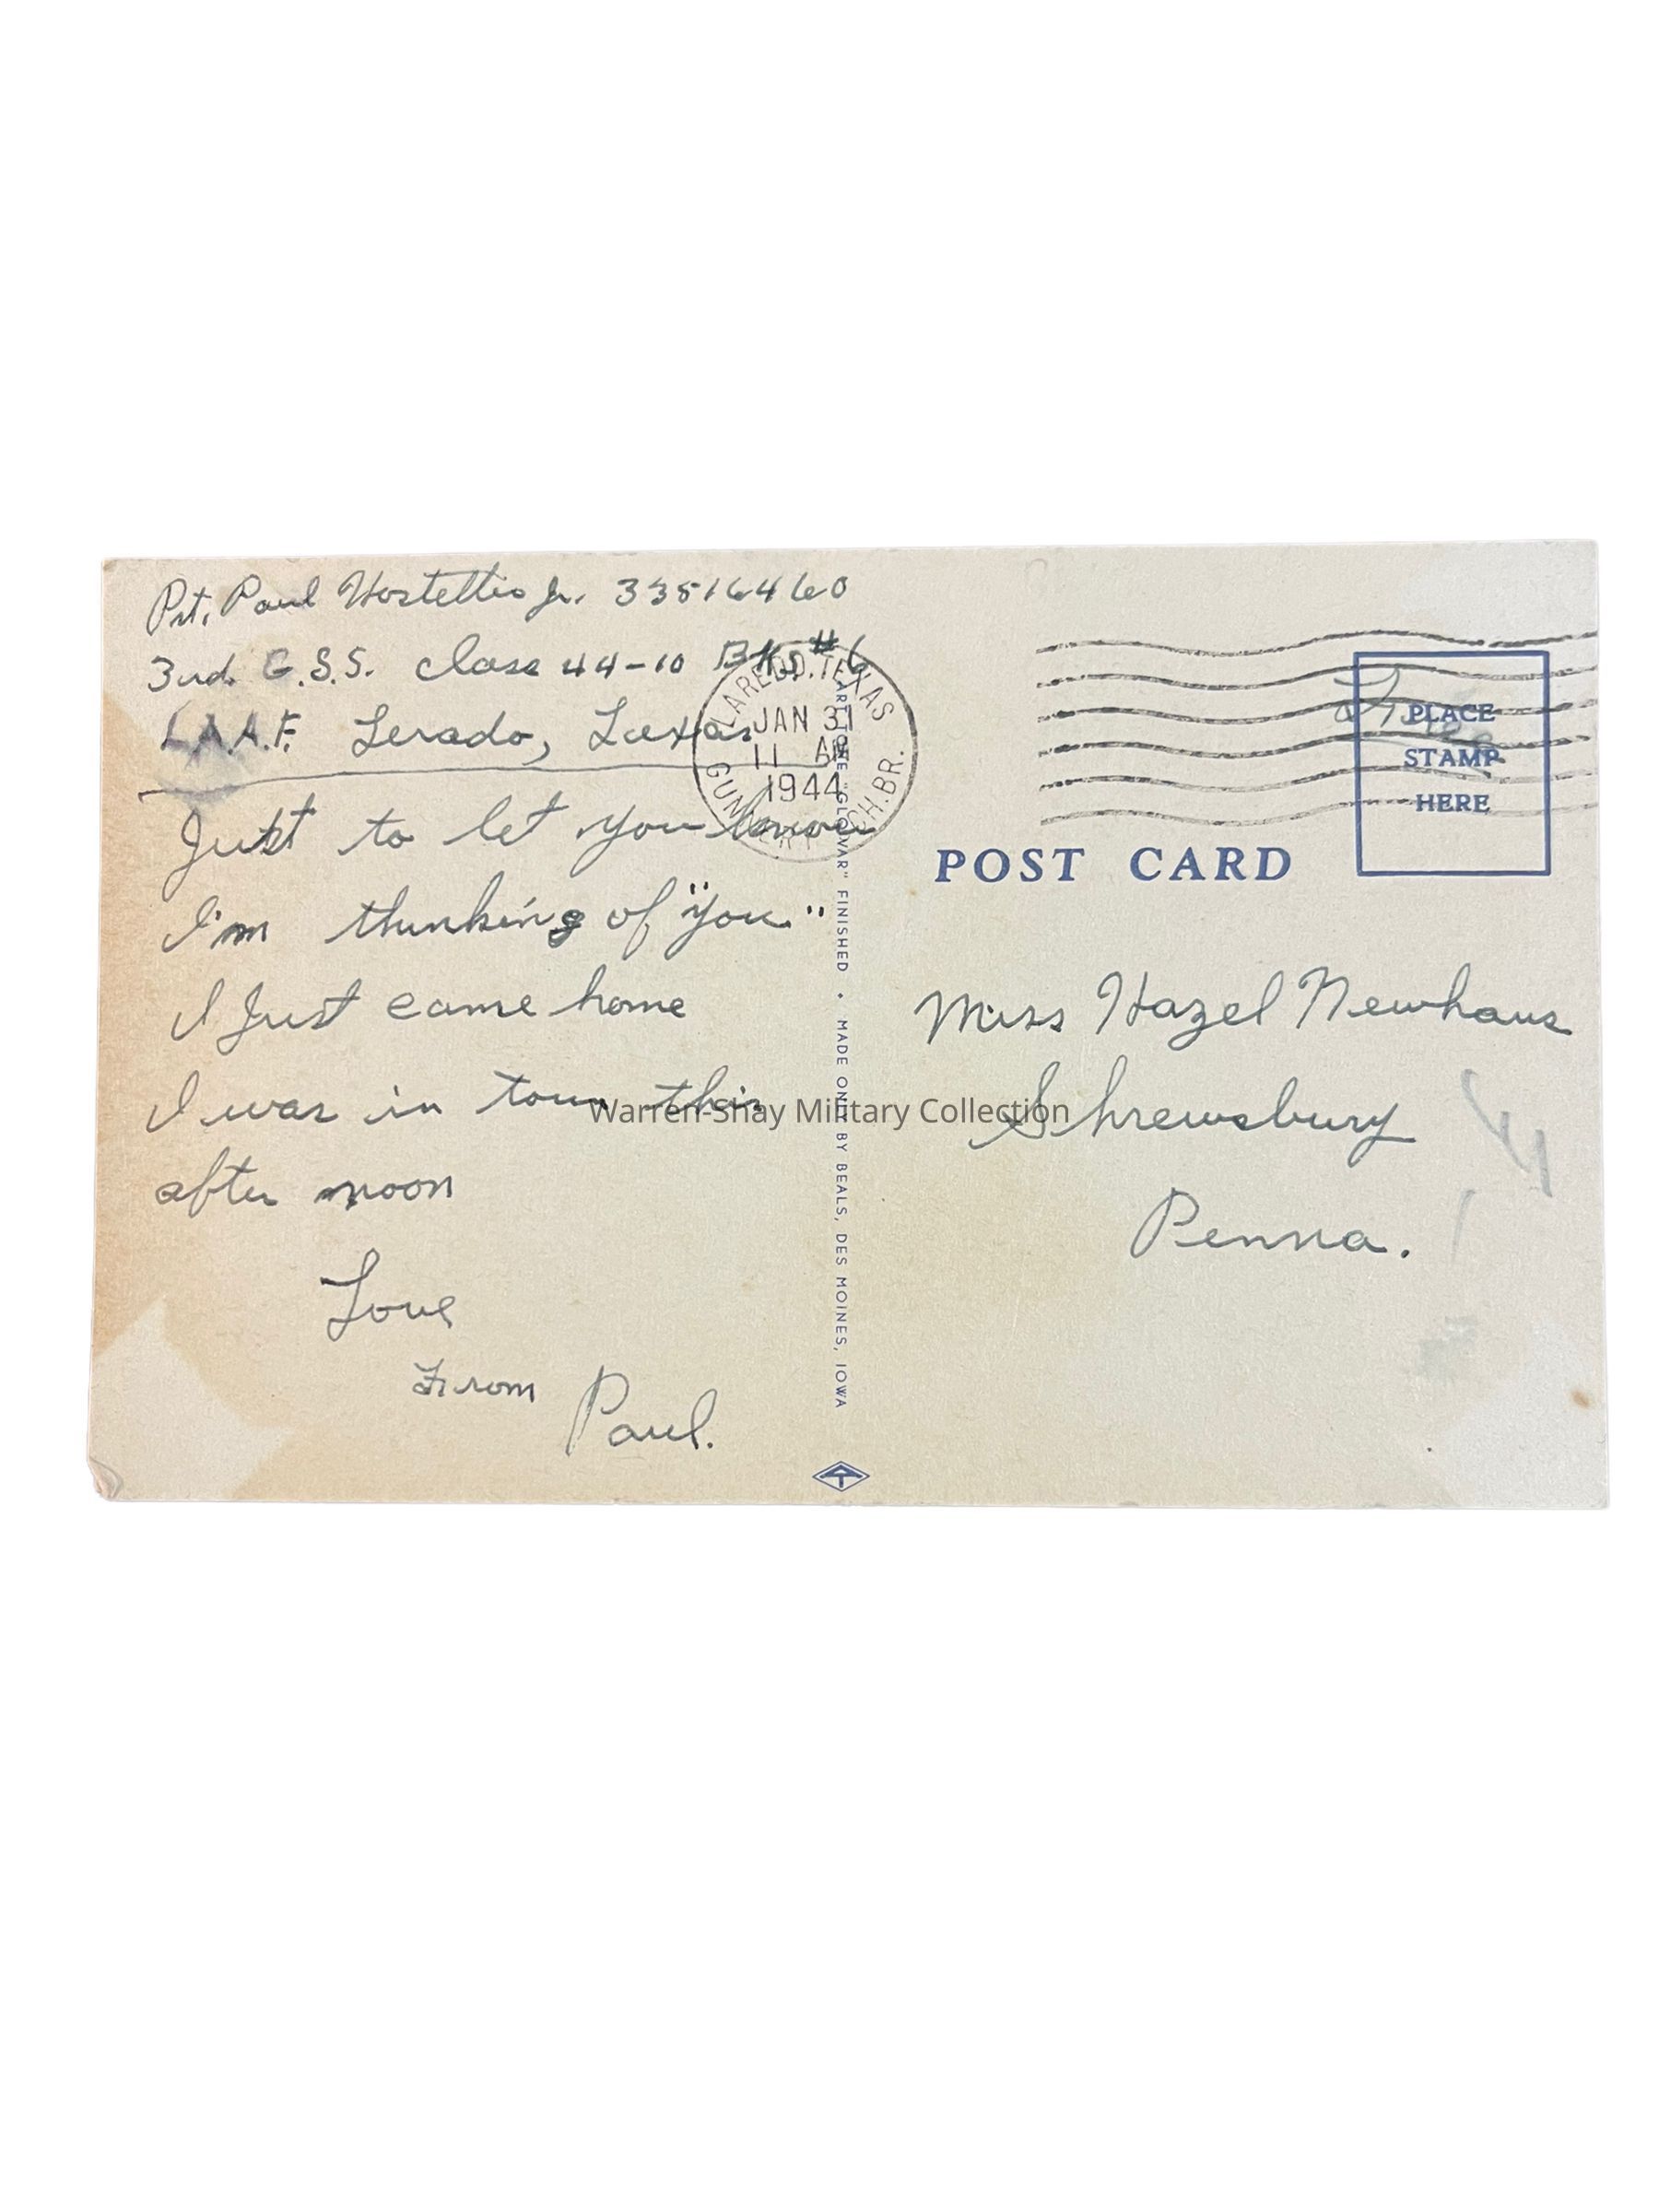 Pvt. Paul Hostetter Jr. 33516460
3rd. G.S.S. Class 44-10 Bks #6
L.A.A.F. Lerado, Texas
Just to let you know
I'm thinking of "you"
I Just came home
I was in town this
after noon
Love
From Paul.
LAREDO, TEXAS
JAN 31
11 AM
1944
GUNNERY SCH. BR.
ARTTONE "GLOVAR" FINISHED • MADE ONLY BY BEALS, DES MOINES, IOWA
Free
PLACE
STAMP
HERE
POST CARD
Miss Hazel Newhaus
Shrewsbury
Penna.
Warren-Shay Military Collection